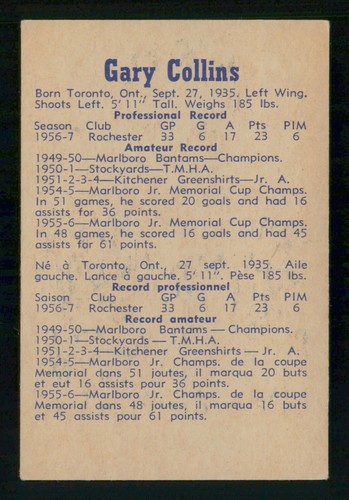 Gary Collins
Born Toronto, Ont., Sept. 27, 1935. Left Wing.
Shoots Left. 5' 11" Tall. Weighs 185 lbs.
Professional Record
Season Club GP G A Pts PIM
1956-7 Rochester 33 6 17 23 6
Amateur Record
1949-50—Marlboro Bantams—Champions.
1950-1—Stockyards—T.M.H.A.
1951-2-3-4—Kitchener Greenshirts—Jr. A.
1954-5—Marlboro Jr. Memorial Cup Champs.
In 51 games, he scored 20 goals and had 16
assists for 36 points.
1955-6—Marlboro Jr. Memorial Cup Champs.
In 48 games, he scored 16 goals and 45
assists for 61 points.
Né à Toronto, Ont., 27 sept. 1935. Aile
gauche. Lance à gauche. 5' 11". Pèse 185 lbs.
Record professionnel
Saison Club GP G A Pts PIM
1956-7 Rochester 33 6 17 23 6
Record amateur
1949-50—Marlboro Bantams—Champions.
1950-1—Stockyards—T.M.H.A.
1951-2-3-4—Kitchener Greenshirts—Jr. A.
1954-5—Marlboro Jr. Champs. de la coupe
Memorial dans 51 joutes, il marqua 20 buts
et eut 16 assists pour 36 points.
1955-6—Marlboro Jr. Champs. de la coupe
Memorial dans 48 joutes, il marqua 16 buts
et 45 assists pour 61 points.